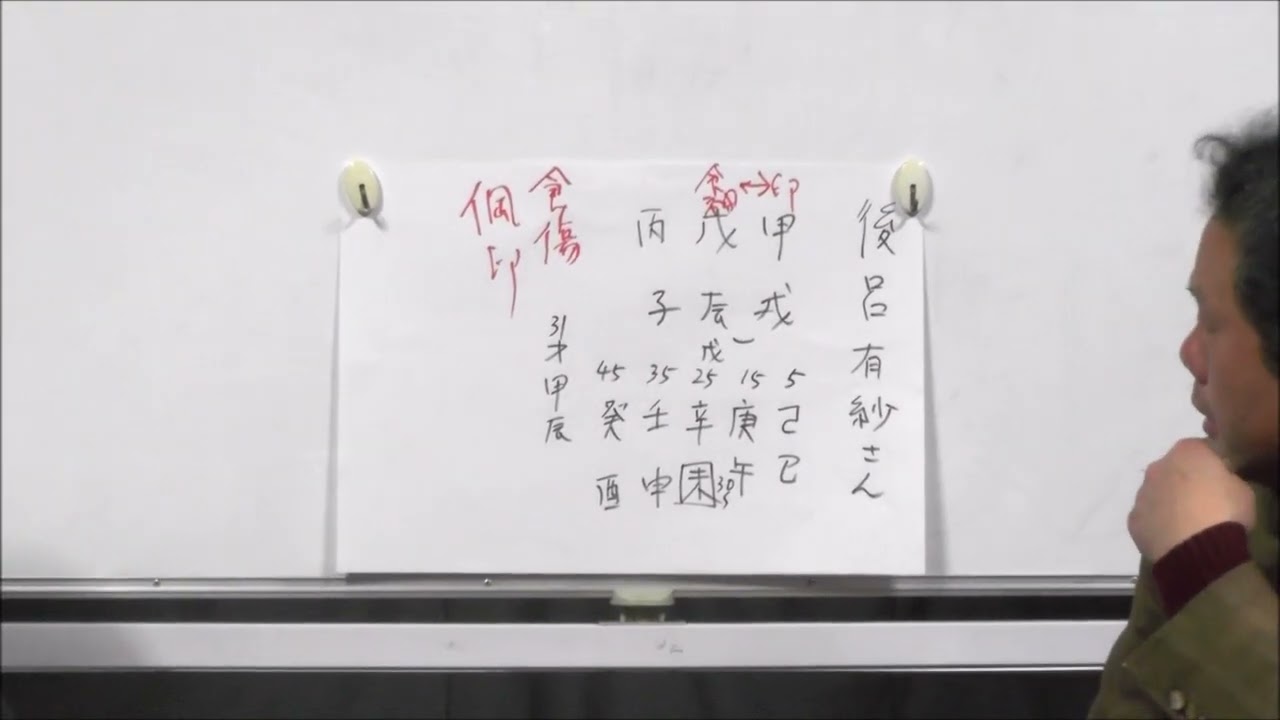 後呂有紗さん
印
甲戌
食神↔
戊辰
戊
丙子
5 己巳
15 庚午
30
25 辛未
35 壬申
45 癸酉
食傷
31才甲辰
偏印